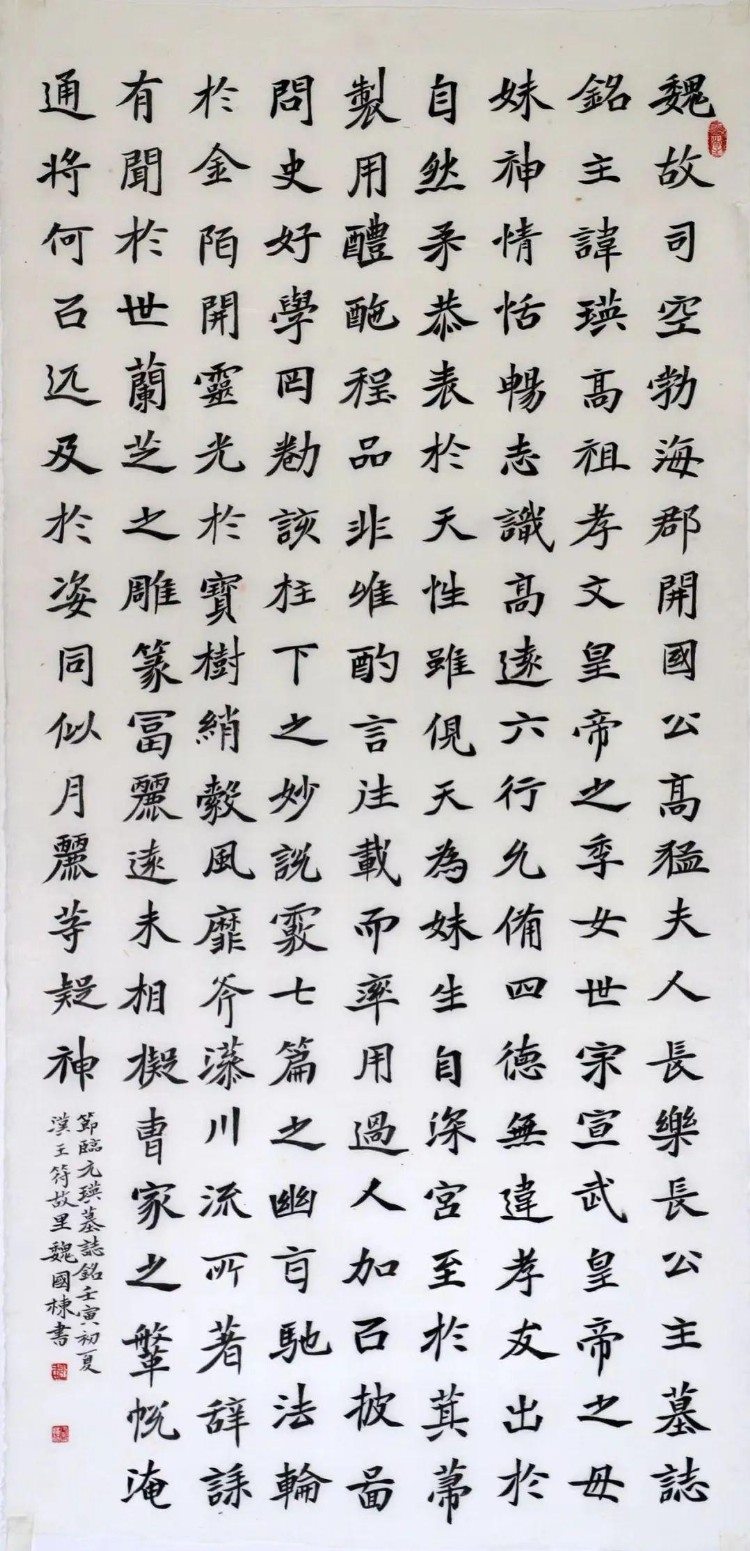 魏故司空勃海郡開國公高猛夫人長樂長公主墓誌
銘主諱瑛高祖孝文皇帝之季女世宗宣武皇帝之母
妹神情恬暢志識高遠六行允備四德無違孝友出於
自然柔恭表於天性雖俔天為妹生自深宮至於箕帚
製用醴酏程品非唯酌言往載而率用過人加㠯披啚
問史好學罔勌該柱下之妙說覈七篇之幽旨馳法輪
於金陌開靈光於寶樹綃縠風靡斧藻川流所著辞誄
有聞於世蘭芝之雕篆富麗遠未相擬曹家之鞶帨淹
通將何㠯远及於姿同似月麗等疑神
節臨元瑛墓誌銘壬寅初夏
漢王符故里魏國棟書